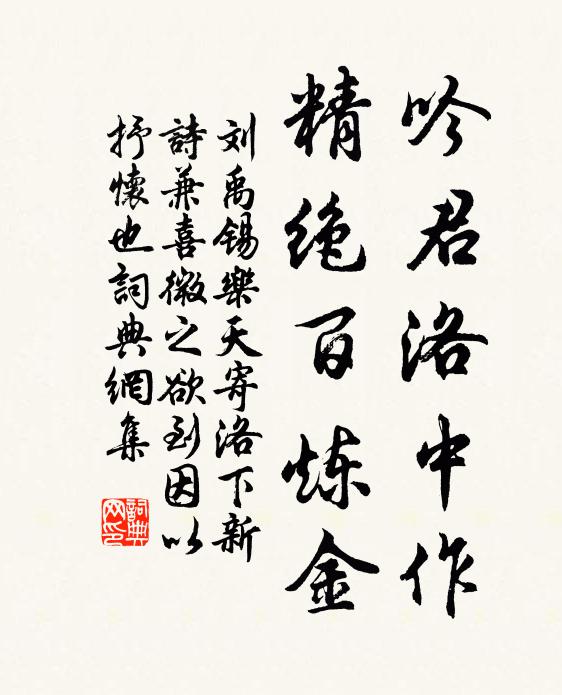 吟君洛中作
精绝百炼金
刘禹锡樂天寄洛下新
詩兼喜微之欲到因以
抒懷也詞典網集
詞典网印